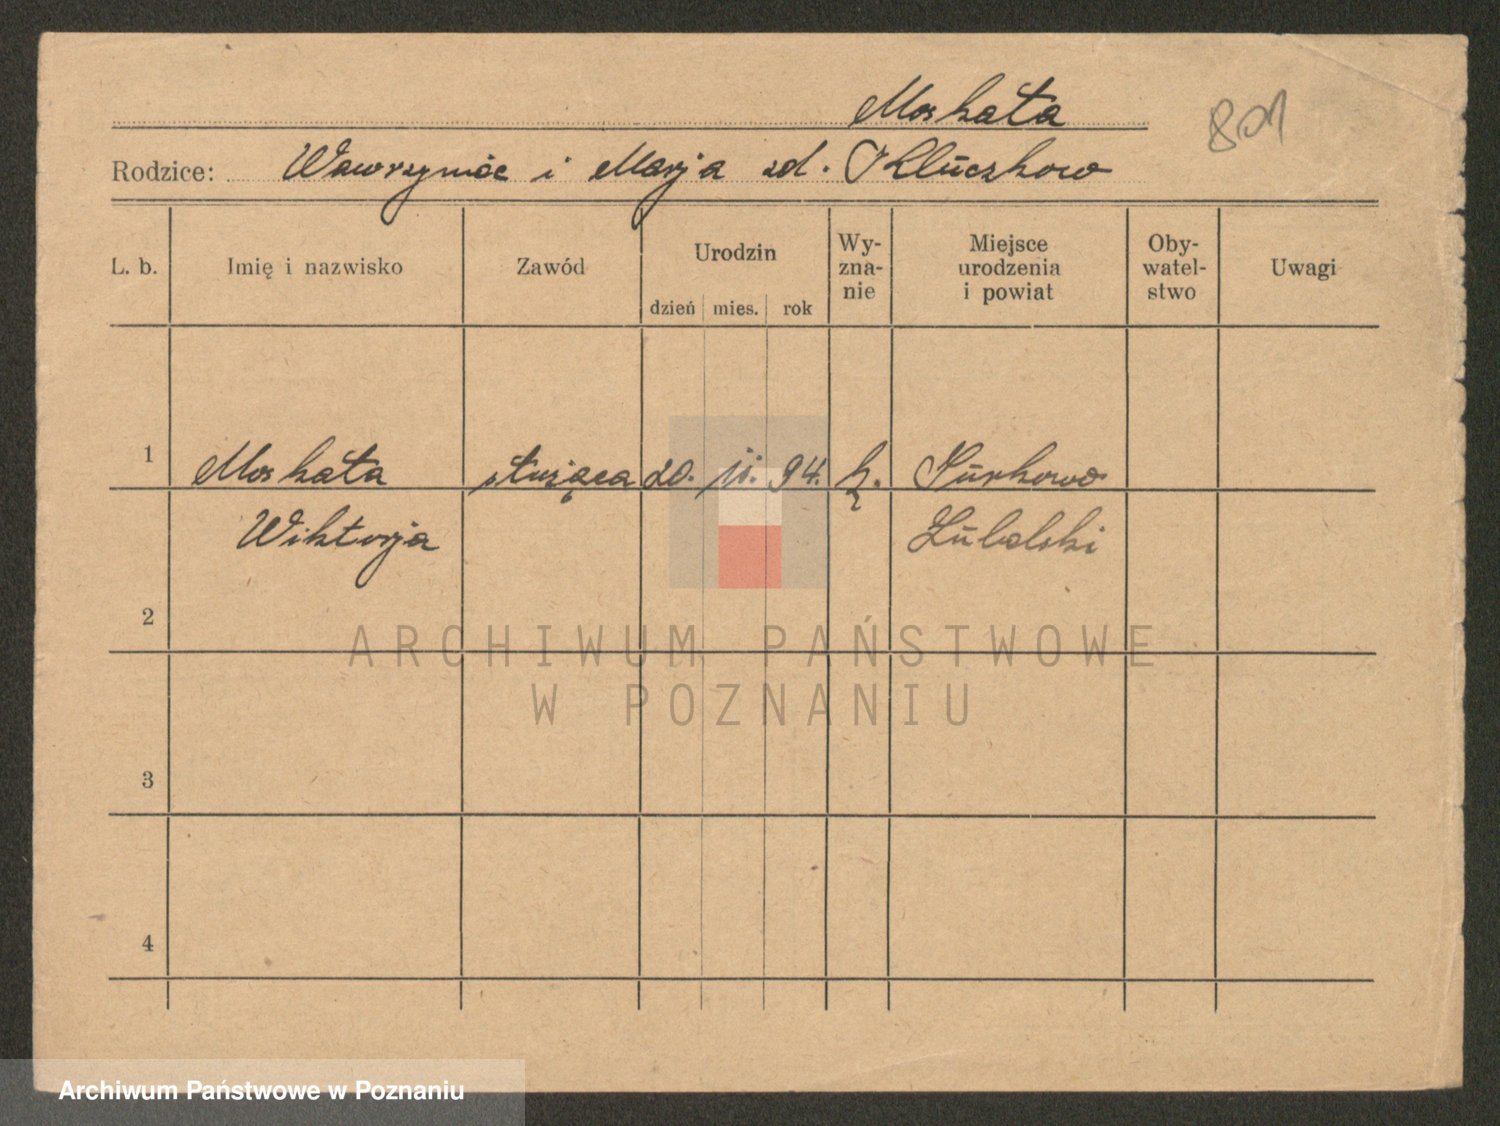 Moskata
801
Rodzice: Wawrzyniec i Marja zd.
L. b. Imię i nazwisko Zawód Urodzin dzień mies. rok Wy-zna-nie Miejsce urodzenia i powiat Oby-watel-stwo Uwagi
1 Moskata służąca 20. 11. 94. k. Turkowo
Wiktorja Lubelski
2
3
4
ARCHIWUM PAŃSTWOWE
W POZNANIU
Archiwum Państwowe w Poznaniu